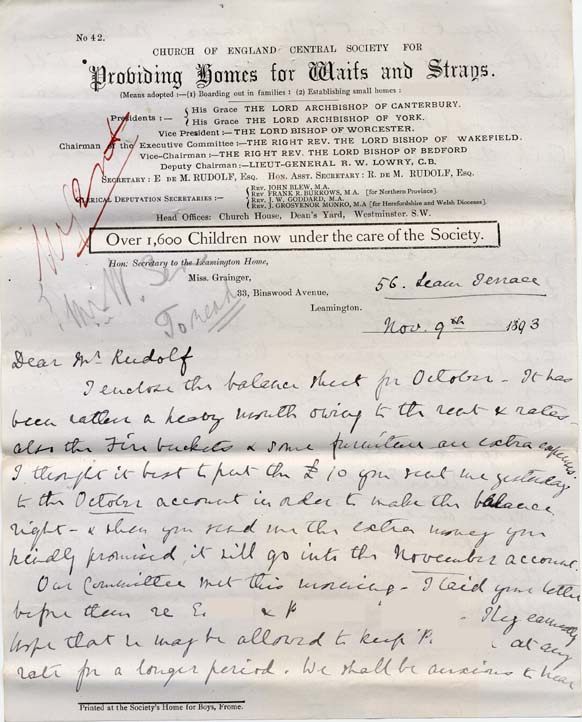 No 42.
CHURCH OF ENGLAND CENTRAL SOCIETY FOR
Providing Homes for Waifs and Strays.
(Means adopted :—(1) Boarding out in families : (2) Establishing small homes :
Presidents :— { His Grace THE LORD ARCHBISHOP OF CANTERBURY.
{ His Grace THE LORD ARCHBISHOP OF YORK.
Vice President :—THE LORD BISHOP OF WORCESTER.
Chairman of the Executive Committee :—THE RIGHT REV. THE LORD BISHOP OF WAKEFIELD.
Vice-Chairman :—THE RIGHT REV. THE LORD BISHOP OF BEDFORD
Deputy Chairman :—LIEUT-GENERAL R. W. LOWRY, C.B.
SECRETARY : E DE M. RUDOLF, ESQ. HON. ASST. SECRETARY : R. DE M. RUDOLF, ESQ.
CLERICAL DEPUTATION SECRETARIES :— { REV. JOHN BLEW, M.A.
REV. FRANK R. BURROWS, M.A. [for Northern Province].
REV. J. W. GODDARD, M.A.
REV. J. GROSVENOR MUNRO, M.A [for Herefordshire and Welsh Dioceses].
Head Offices: Church House, Dean's Yard, Westminster. S.W.
Over 1,600 Children now under the care of the Society.
Urgent
Hon: Secretary to the Leamington Home,
Miss. Grainger,
33, Binswood Avenue,
Leamington.
Mr. W.
To read
56. Leam Terrace
Nov. 9th 1893
Dear Mr Rudolf
I enclose the balance sheet for October - It has
been rather a heavy month owing to the rent & rates -
also the Fire buckets & some furniture are extra expenses.
I thought it best to put the £10 you sent me yesterday
to the October account in order to make the balance
right - & when you send me the extra money you
kindly promised, it will go into the November account.
Our Committee met this morning - I laid your letter
before them re E. & P - They earnestly
hope that we may be allowed to keep P. at any
rate for a longer period. We shall be anxious to hear
Printed at the Society's Home for Boys, Frome.